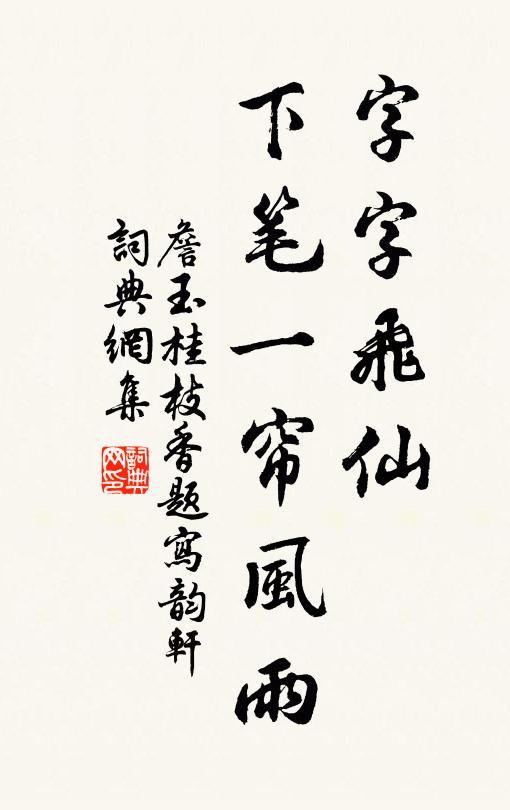 字字飛仙
下笔一帘風雨
詹玉桂枝香题寫韵軒
詞典網集
詞典网印